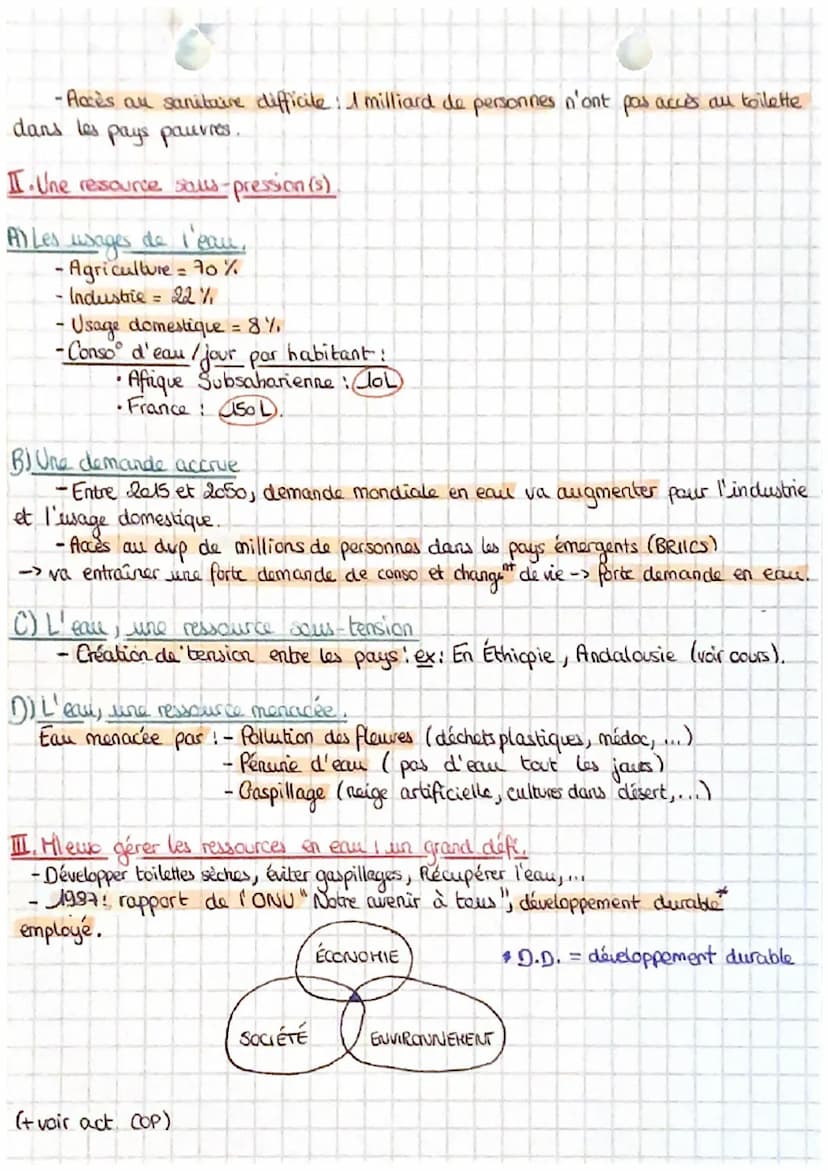 - Accès au sanitaire difficile : 1 milliard de personnes n'ont pas accès au toilette
dans les pays pauvres.
II. Une ressource sous-pression(s)
A) Les usages de l'eau.
- Agriculture = 70 %
- Industrie = 22 %
- Usage domestique = 8 %
- Conso° d'eau / jour par habitant :
• Afrique Subsaharienne : 10L
• France : 150 L.
B) Une demande accrue
- Entre 2015 et 2050, demande mondiale en eau va augmenter pour l'industrie
et l'usage domestique.
- Accès au dvp de millions de personnes dans les pays émergents (BRIICS)
-> va entraîner une forte demande de conso et changemt de vie -> forte demande en eau.
C) L'eau, une ressource sous-tension
- Création de tension entre les pays : ex : En Éthiopie, Andalousie (voir cours).
D) L'eau, une ressource menacée.
Eau menacée par : - Pollution des fleuves (déchets plastiques, médoc, ...)
- Pénurie d'eau ( pas d'eau tout les jours)
- Gaspillage (neige artificielle, cultures dans désert, ...)
III. Mieux gérer les ressources en eau : un grand défi.
- Développer toilettes sèches, éviter gaspillages, Récupérer l'eau, ...
- 1987 : rapport de l'ONU " Notre avenir à tous ", développement durable*
employé.
ÉCONOMIE
* D.D. = développement durable
SOCIÉTÉ ENVIRONNEMENT
(+ voir act. COP)